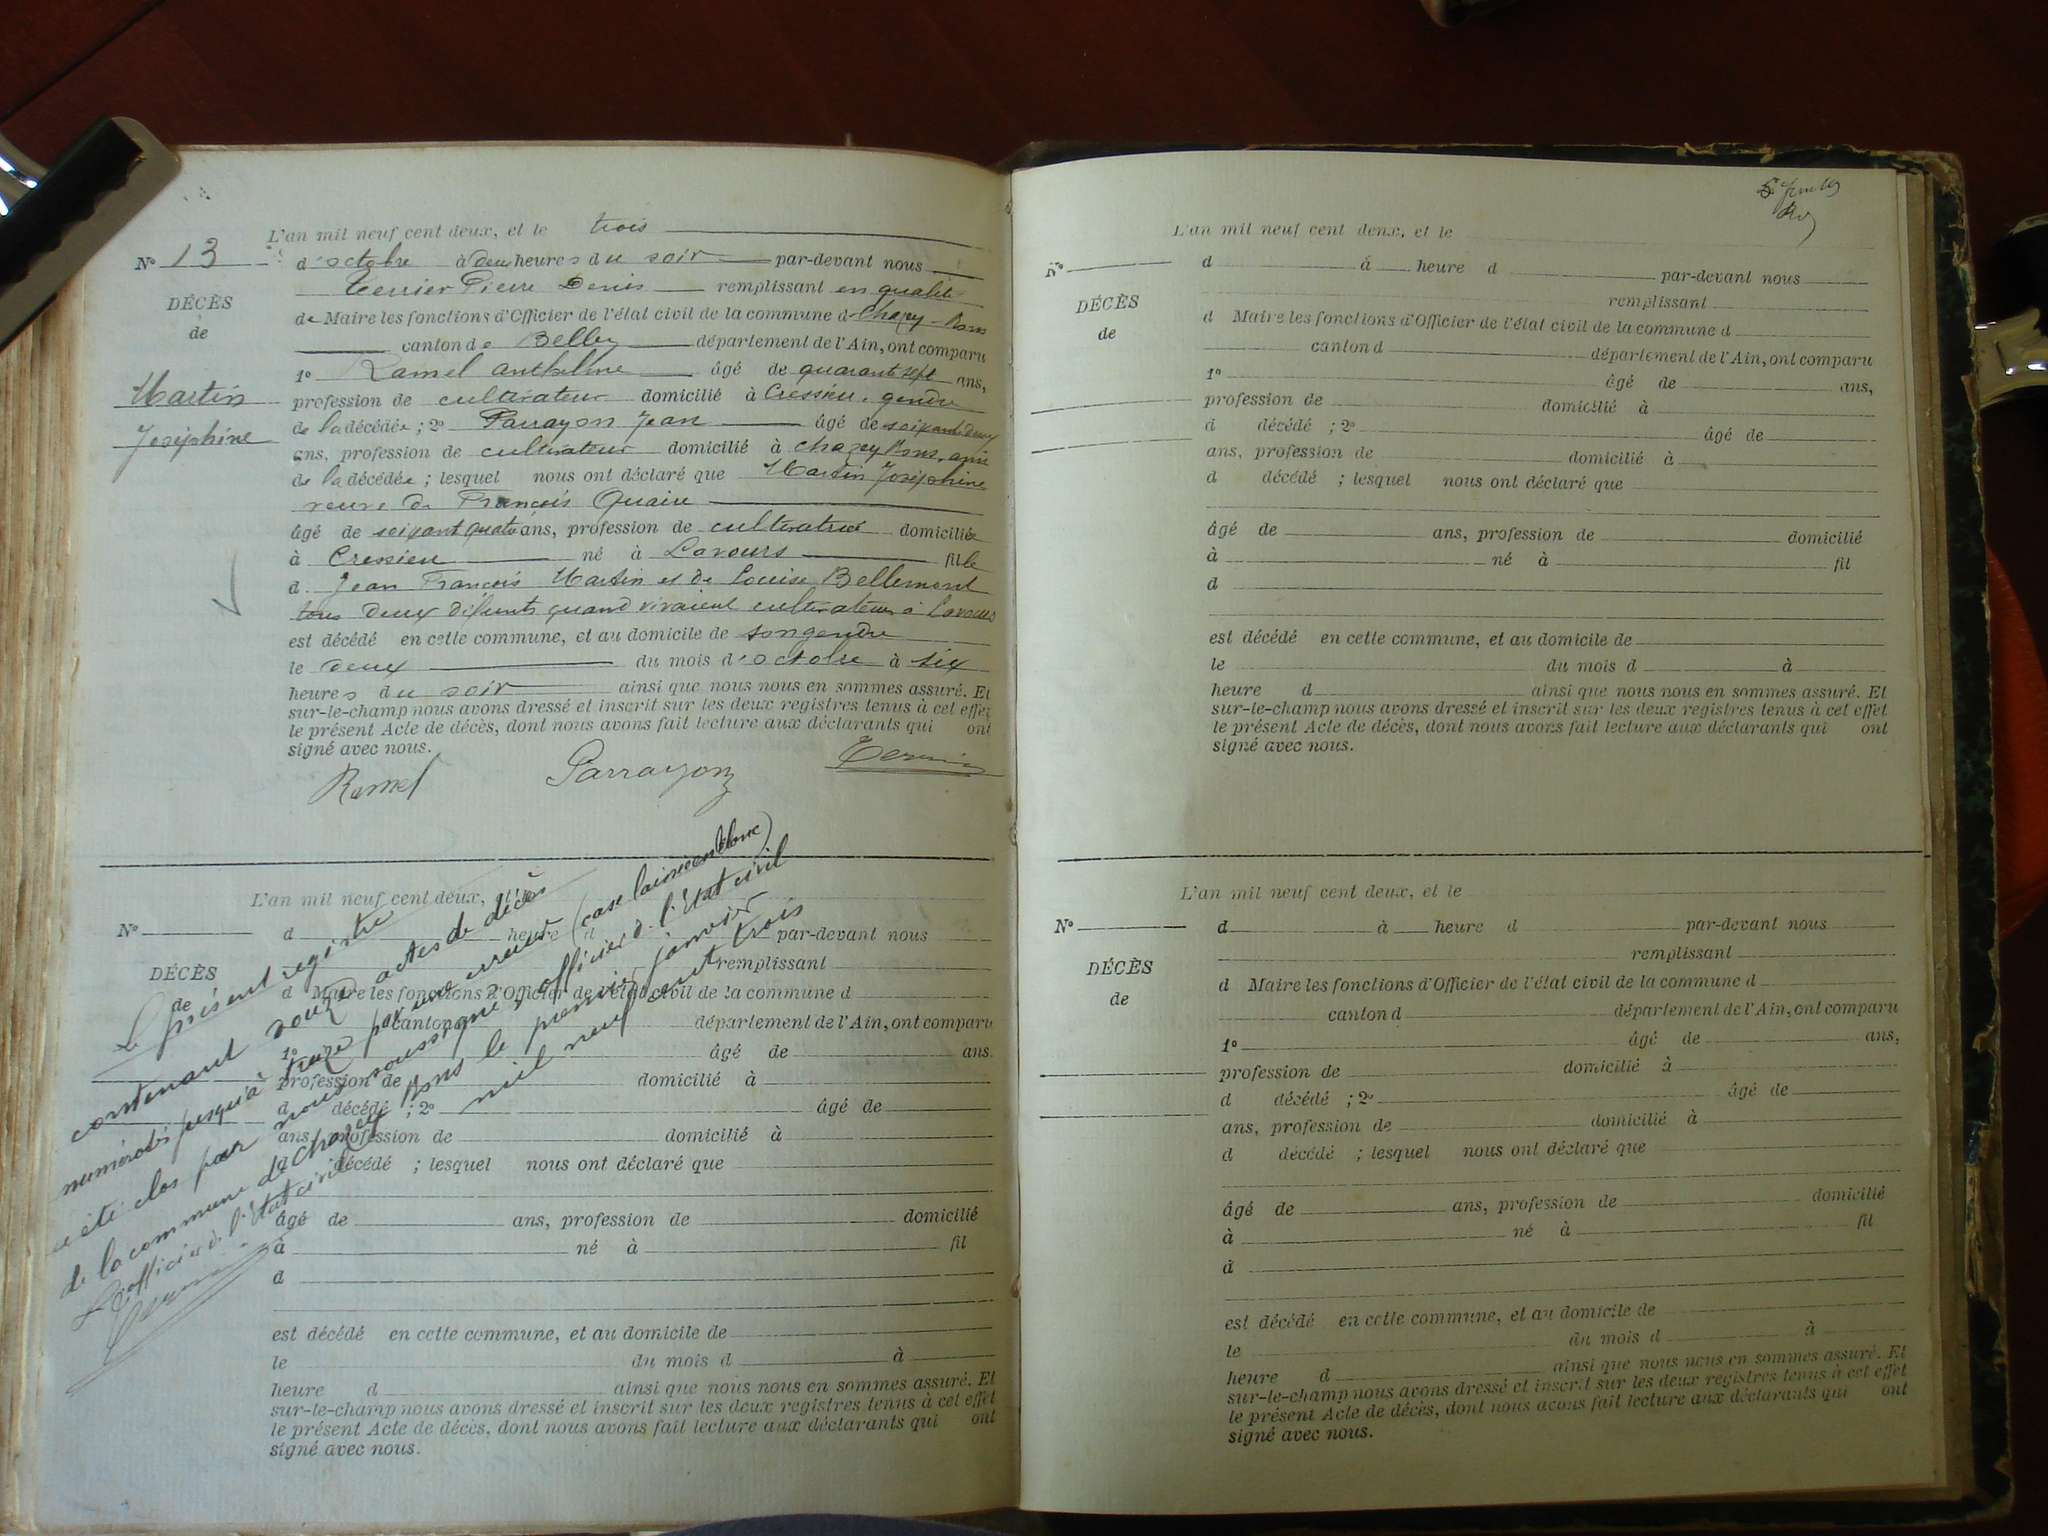 L'an mil neuf cent deux, et le trois
N° 13
d'octobre à deux heures du soir par-devant nous
Terrier Pierre Denis remplissant en qualité
DÉCÈS
de Maire les fonctions d'Officier de l'état civil de la commune d Chazey-Bons
de
canton de Belley département de l'Ain, ont comparu
1° Ramel Anthelme âgé de quarante sept ans,
Martin
profession de cultivateur domicilié à Cressieu, gendre
de la décédée ; 2° Parrayon Jean âgé de soixante deux
Joséphine
ans, profession de cultivateur domicilié à Chazey Bons, ami
de la décédée ; lesquel nous ont déclaré que Martin Joséphine
veuve de François Quaire
âgé de soixant quatre ans, profession de cultivatrice domiciliée
à Cressieu né à Lavours fille
d Jean François Martin et de Louise Bellemont
tous deux défunts quand vivaient cultivateurs à Lavours
est décédé en cette commune, et au domicile de son gendre
le deux du mois d'octobre à six
heures du soir ainsi que nous nous en sommes assuré. Et
sur-le-champ nous avons dressé et inscrit sur les deux registres tenus à cet effet
le présent Acte de décès, dont nous avons fait lecture aux déclarants qui ont
signé avec nous.
Ramel Parrayon Terrier
L'an mil neuf cent deux, et le
N°
d heure d par-devant nous
DÉCÈS
remplissant
de
d Maire les fonctions d'Officier de l'état civil de la commune d
canton d département de l'Ain, ont comparu
1° âgé de ans.
profession de domicilié à
d décédé ; 2° âgé de
ans, profession de domicilié à
d décédé ; lesquel nous ont déclaré que
âgé de ans, profession de domicilié
à né à fil
d
est décédé en cette commune, et au domicile de
le du mois d à
heure d ainsi que nous nous en sommes assuré. Et
sur-le-champ nous avons dressé et inscrit sur les deux registres tenus à cet effet
le présent Acte de décès, dont nous avons fait lecture aux déclarants qui ont
signé avec nous.
Le présent registre
contenant douze actes de décès
numérotés jusqu'à treize par une erreur (case laissée en blanc)
a été clos par nous soussigné officier de l'Etat civil
de la commune de Chazey Bons le premier janvier
mil neuf cent trois
L'officier de l'Etat civil
Terrier
L'an mil neuf cent deux, et le
N°
d à heure d par-devant nous
DÉCÈS
remplissant
de
d Maire les fonctions d'Officier de l'état civil de la commune d
canton d département de l'Ain, ont comparu
1° âgé de ans,
profession de domicilié à
d décédé ; 2° âgé de
ans, profession de domicilié à
d décédé ; lesquel nous ont déclaré que
âgé de ans, profession de domicilié
à né à fil
d
est décédé en cette commune, et au domicile de
le du mois d à
heure d ainsi que nous nous en sommes assuré. Et
sur-le-champ nous avons dressé et inscrit sur les deux registres tenus à cet effet
le présent Acte de décès, dont nous avons fait lecture aux déclarants qui ont
signé avec nous.
L'an mil neuf cent deux, et le
N°
d à heure d par-devant nous
DÉCÈS
remplissant
de
d Maire les fonctions d'Officier de l'état civil de la commune d
canton d département de l'Ain, ont comparu
1° âgé de ans,
profession de domicilié à
d décédé ; 2° âgé de
ans, profession de domicilié à
d décédé ; lesquel nous ont déclaré que
âgé de ans, profession de domicilié
à né à fil
d
est décédé en cette commune, et au domicile de
le du mois d à
heure d ainsi que nous nous en sommes assuré. Et
sur-le-champ nous avons dressé et inscrit sur les deux registres tenus à cet effet
le présent Acte de décès, dont nous avons fait lecture aux déclarants qui ont
signé avec nous.